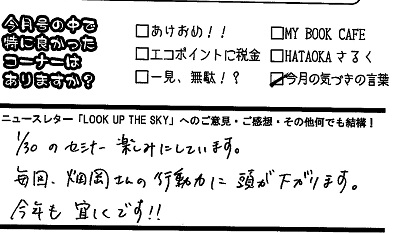 今月号の中で
特に良かった
コーナーは
ありますか？
□あけおめ！！ □MY BOOK CAFE
□エコポイントに税金 □HATAOKAさるく
□一見、無駄！？ ☑今月の気づきの言葉
ニュースレター「LOOK UP THE SKY」へのご意見・ご感想・その他何でも結構！
1/30 のセミナー楽しみにしています。
毎回、畑岡さんの行動力に頭が下がります。
今年も宜しくです!!